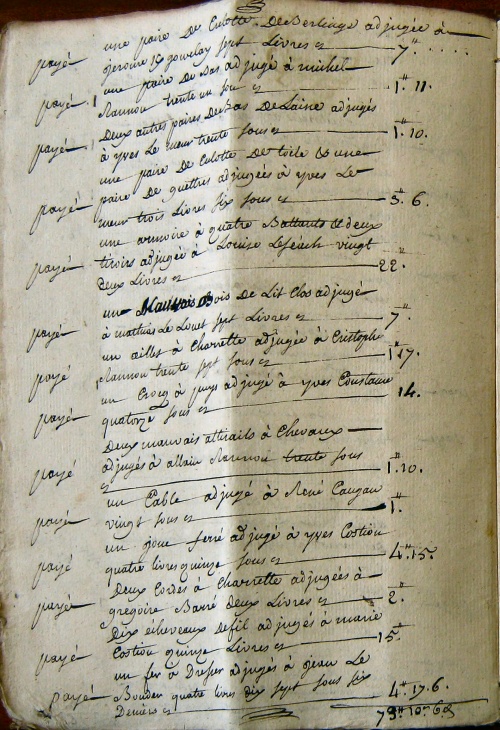 une paire de Culotte de Berlinge adjugée à
payé jerome le gouvelay sept Livres 7#
une paire de bas adjugé à michel
payé Rannou trente un sou 1# 11.
Deux autres paires de bas de Laine adjugés
payé à yves Le meur trente sous 1# 10.
une paire de Culotte de toile & une
paire de guettres adjugées à yves Le
payé meur trois Livres six sous 3# 6.
une armoire à quatre Battants & deux
tiroirs adjugée à Louise vingt
payé deux Livres 22.
un Mauvais Bois de Lit Clos adjugé
payé à mathieu Le Louet sept Livres 7#
un œillet à Charrette adjugée à Cristophe
payé Rannou trente sept sous 1# 17.
un Crocq à puys adjugé à yves Coustans
payé quatorze sous 14.
Deux mauvais attirails à Chevaux
payé adjugés à allain Rannou trente sous
1# 10.
un Cable adjugé à René Caugan
payé vingt sous 1#
un joug ferré adjugé à yves Costiou
payé quatre livres quinze sous 4# 15.
Deux Cordes à Charrette adjugées à
payé gregoire Barré deux Livres 2#
Dix écheveaux de fil adjugés à marie
payé Costiou quinze Livres 15#
un fer à Dresser adjugés à jean Le
payé Bouder quatre livres dix sept sous six
Deniers 4# 17. 6.
79# 10s 6d